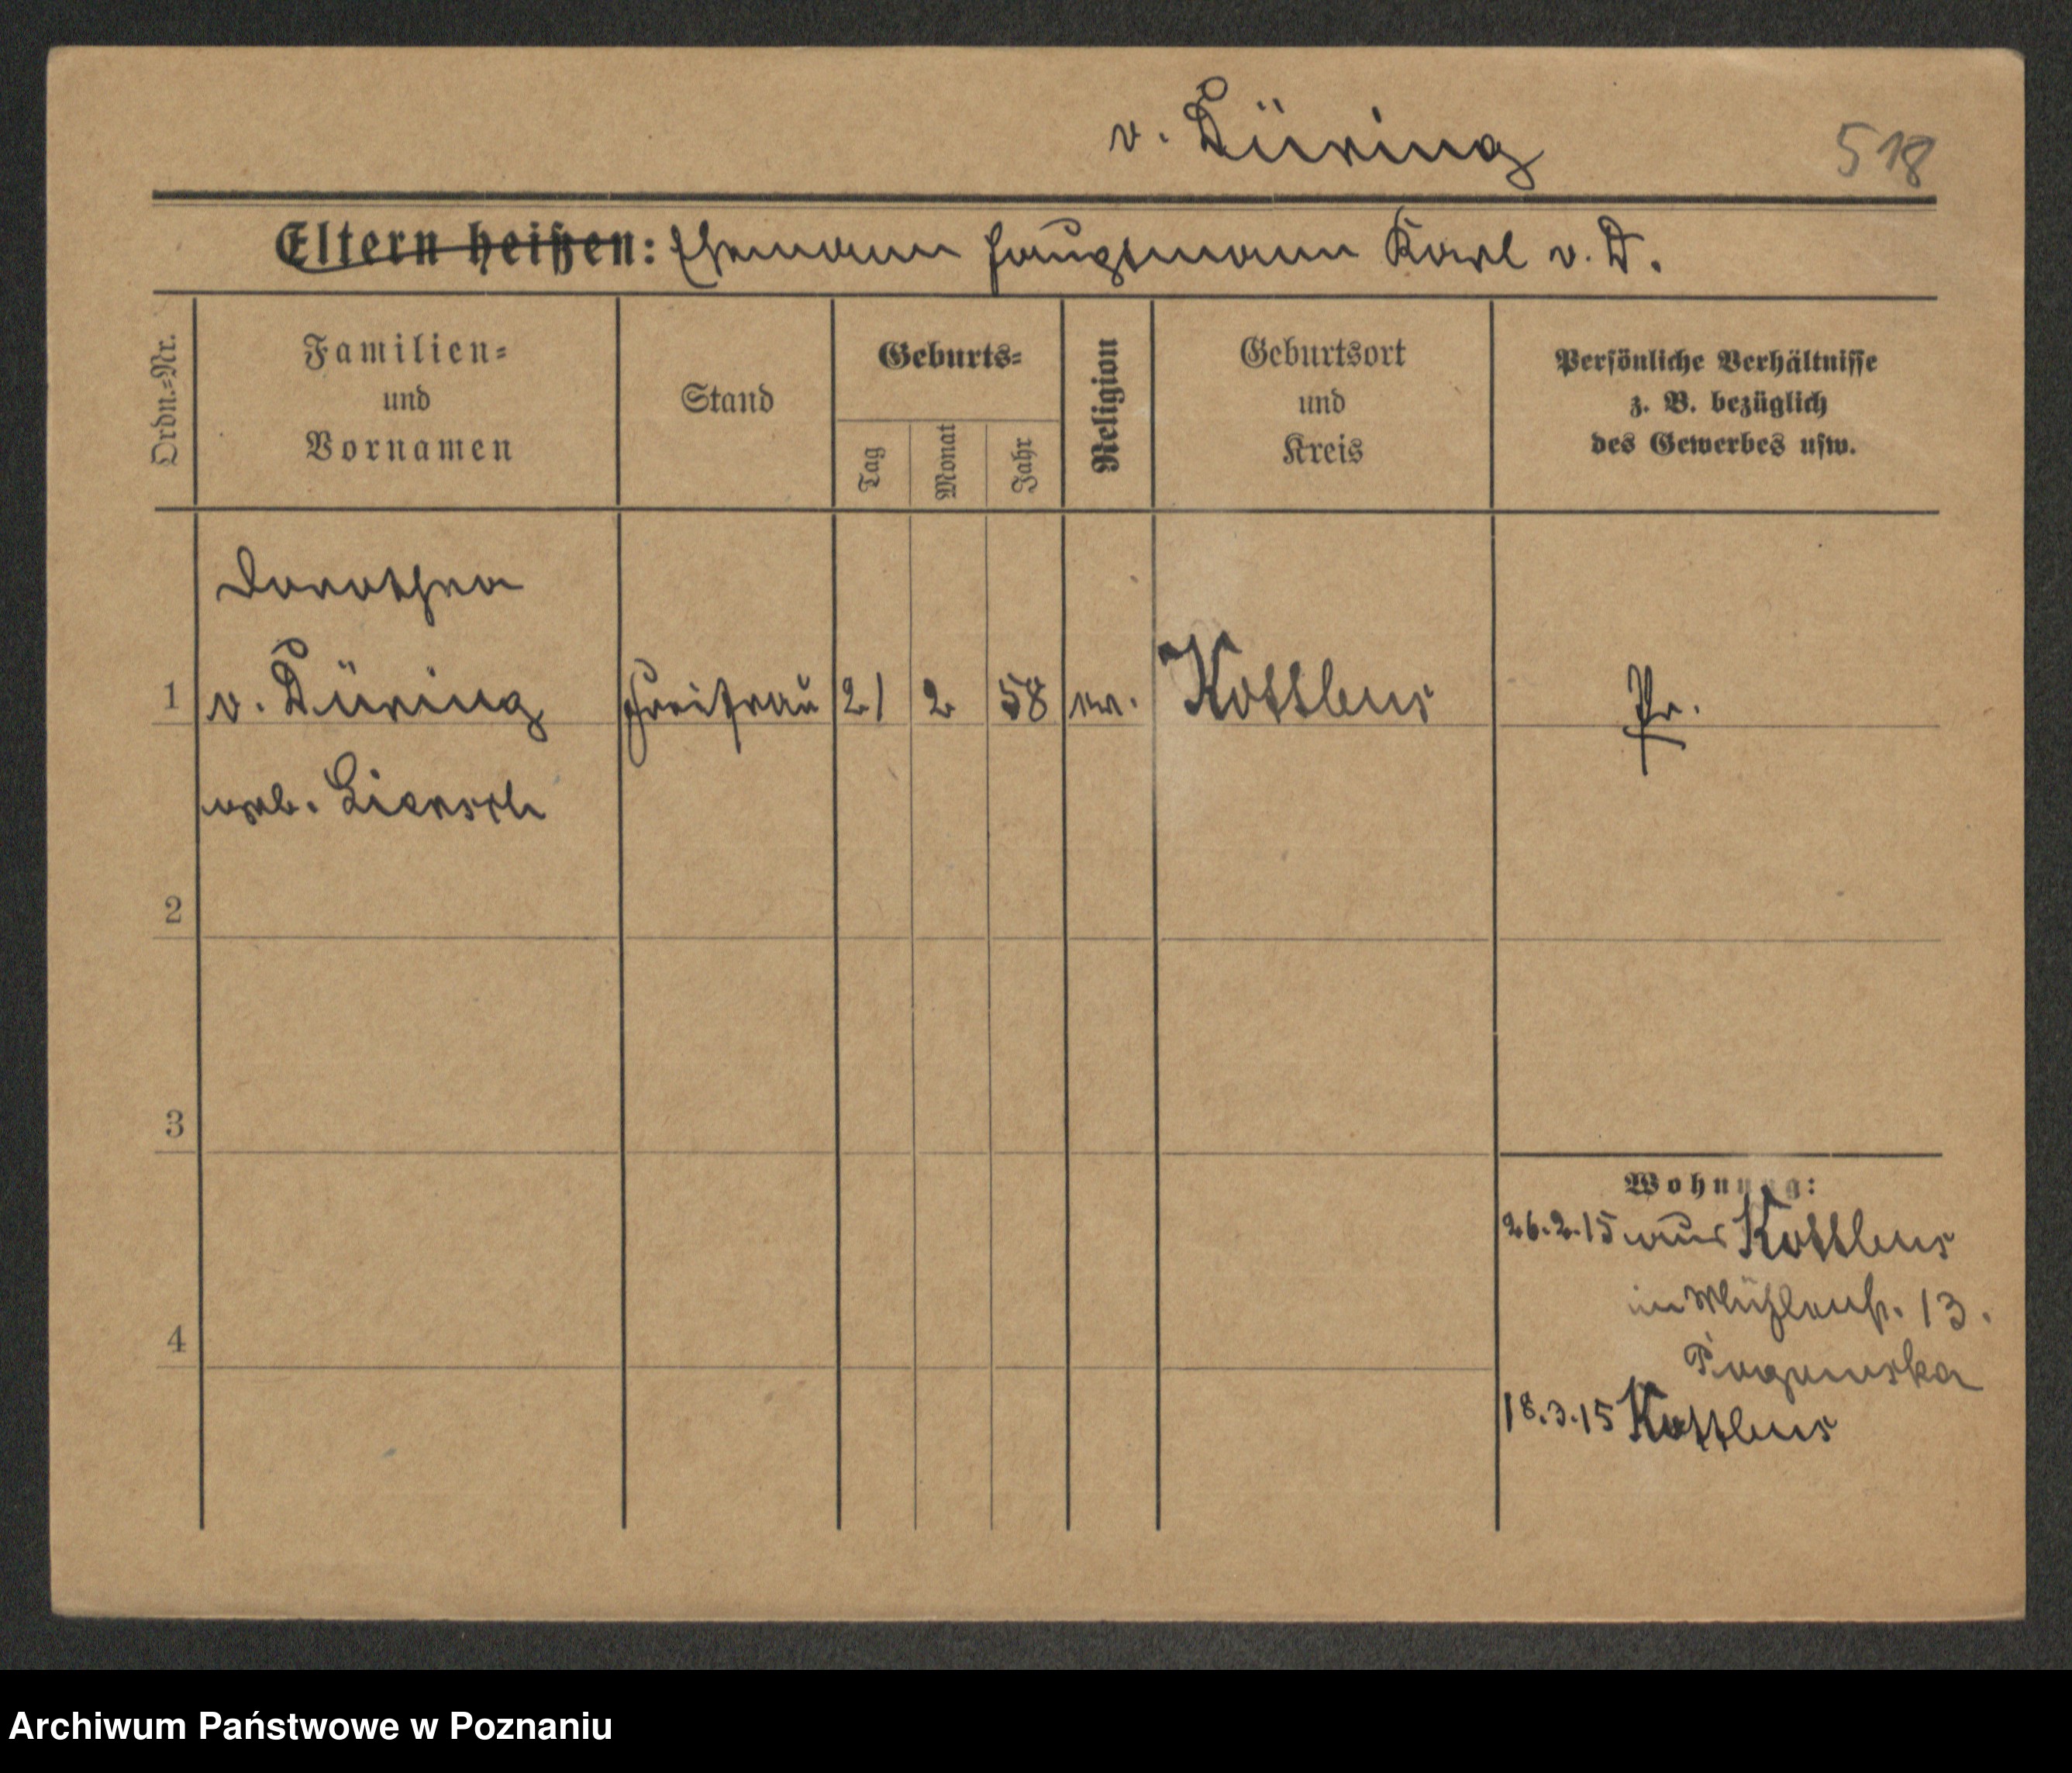 v. Düring
518
Eltern heißen: Ehemann Hauptmann Karl v. D.
Ordn.-Nr.
Familien-
und
Vornamen
Stand
Geburts-
Tag
Monat
Jahr
Religion
Geburtsort
und
Kreis
Persönliche Verhältnisse
z. B. bezüglich
des Gewerbes usw.
Dorothea
1 v. Düring Freifrau 21 2 58 ev. Kottbus Pr.
geb. Liersch
2
3
4
Wohnung:
26.2.15 aus Kottbus
in Mühlenstr. 13.
18.3.15 Kottbus
Archiwum Państwowe w Poznaniu